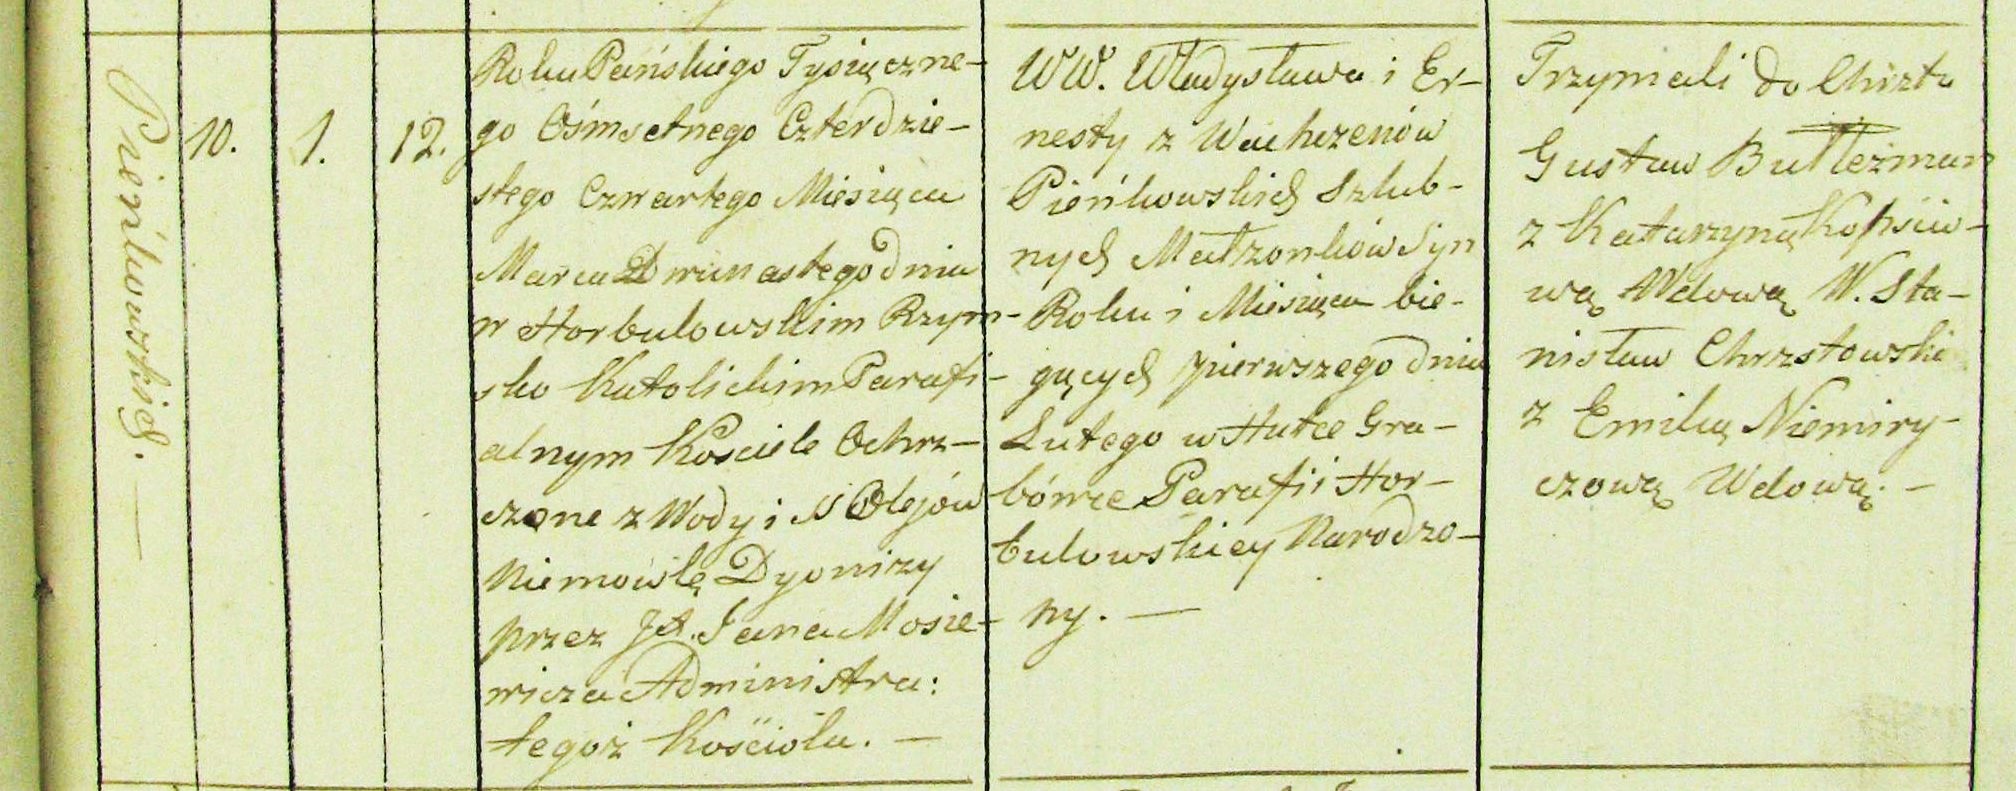 Pieńkowskich. —
10.
1.
12.
Roku Pańskiego Tysiączne-
go Ośmsetnego Czterdzie-
stego Czwartego Miesiąca
Marca Dwunastego dnia
w Horbulowskim Rzym-
sko Katolickim Parafi-
alnym Kosciele Ochrz-
czone z Wody i SS Olejów
Niemowlę Dyonizy
przez JX. Jana Mosie-
wicza Administra:
tegoż Kościoła. —
WW. Władysława i Er-
nesty z
Pieńkowskich Szlub-
nych Małżonków Syn
Roku i Miesiąca bie-
gących pierwszego dnia
Lutego w Hutce Gra-
bówce Parafii Hor-
bulowskiey Narodzo-
ny. —
Trzymali do Chrztu
Gustaw
z Katarzyną Kopściw-
wą Wdową W. Sta-
nisław Chrzstowski
z Emilią Niemiry-
czową Wdową. —